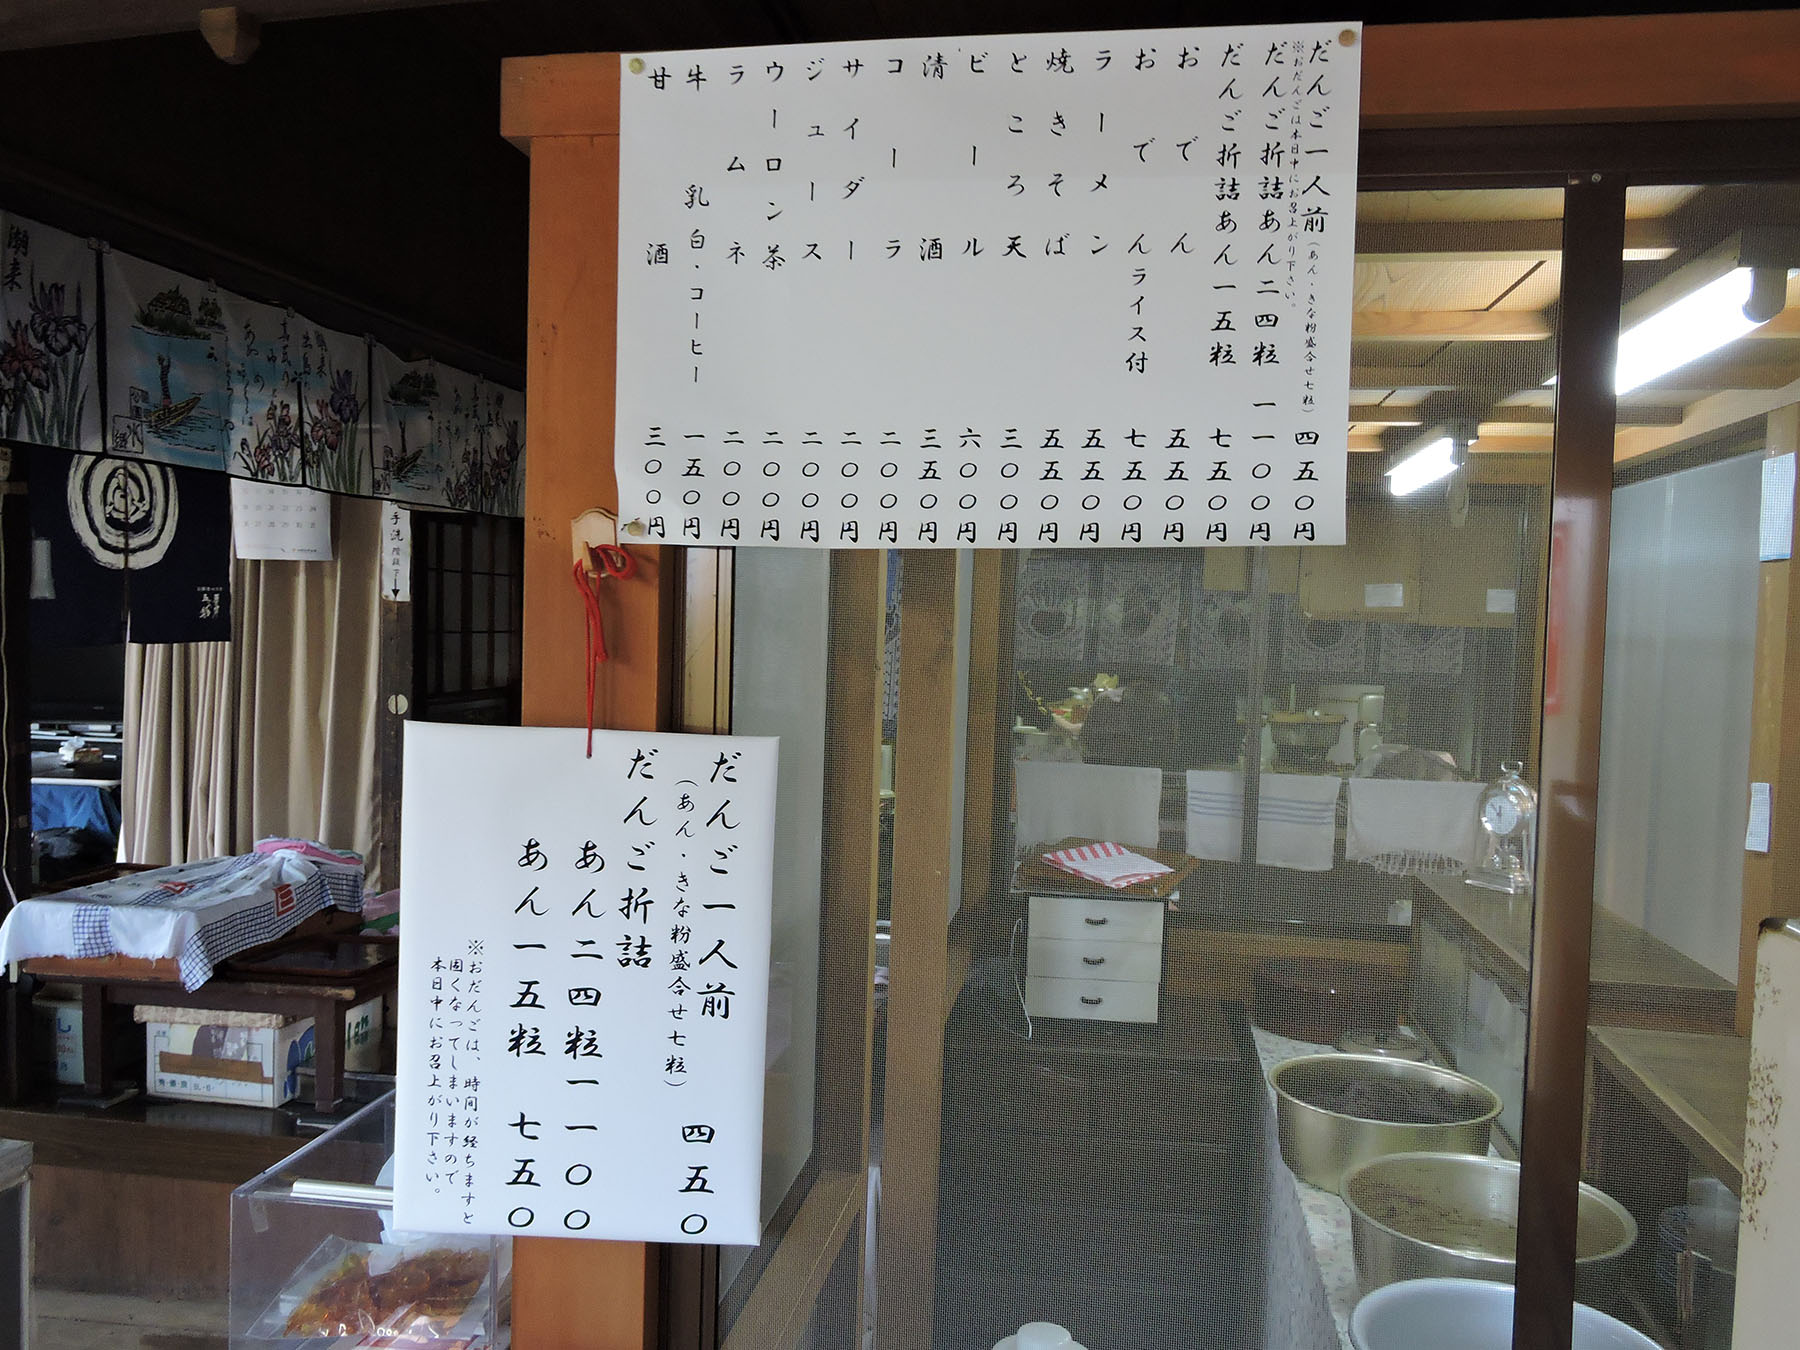 だんご一人前(あん・きな粉盛合せ七粒) 四五〇円
※おだんごは本日中にお召上がり下さい。
だんご折詰あん二四粒 一一〇〇円
だんご折詰あん一五粒 七五〇円
おでん 五五〇円
おでんライス付 七五〇円
ラーメン 五五〇円
焼きそば 五五〇円
ところ天 三〇〇円
ビール 六〇〇円
清酒 三五〇円
コーラ 二〇〇円
サイダー 二〇〇円
ジュース 二〇〇円
ウーロン茶 二〇〇円
ラムネ 二〇〇円
牛乳 白・コーヒー 一五〇円
甘酒 三〇〇円
だんご一人前 四五〇
(あん・きな粉盛合せ七粒)
だんご折詰
あん二四粒 一一〇〇
あん一五粒 七五〇
※おだんごは、時間が経ちますと
固くなってしまいますので
本日中にお召上がり下さい。
潮来
手洗 階段下